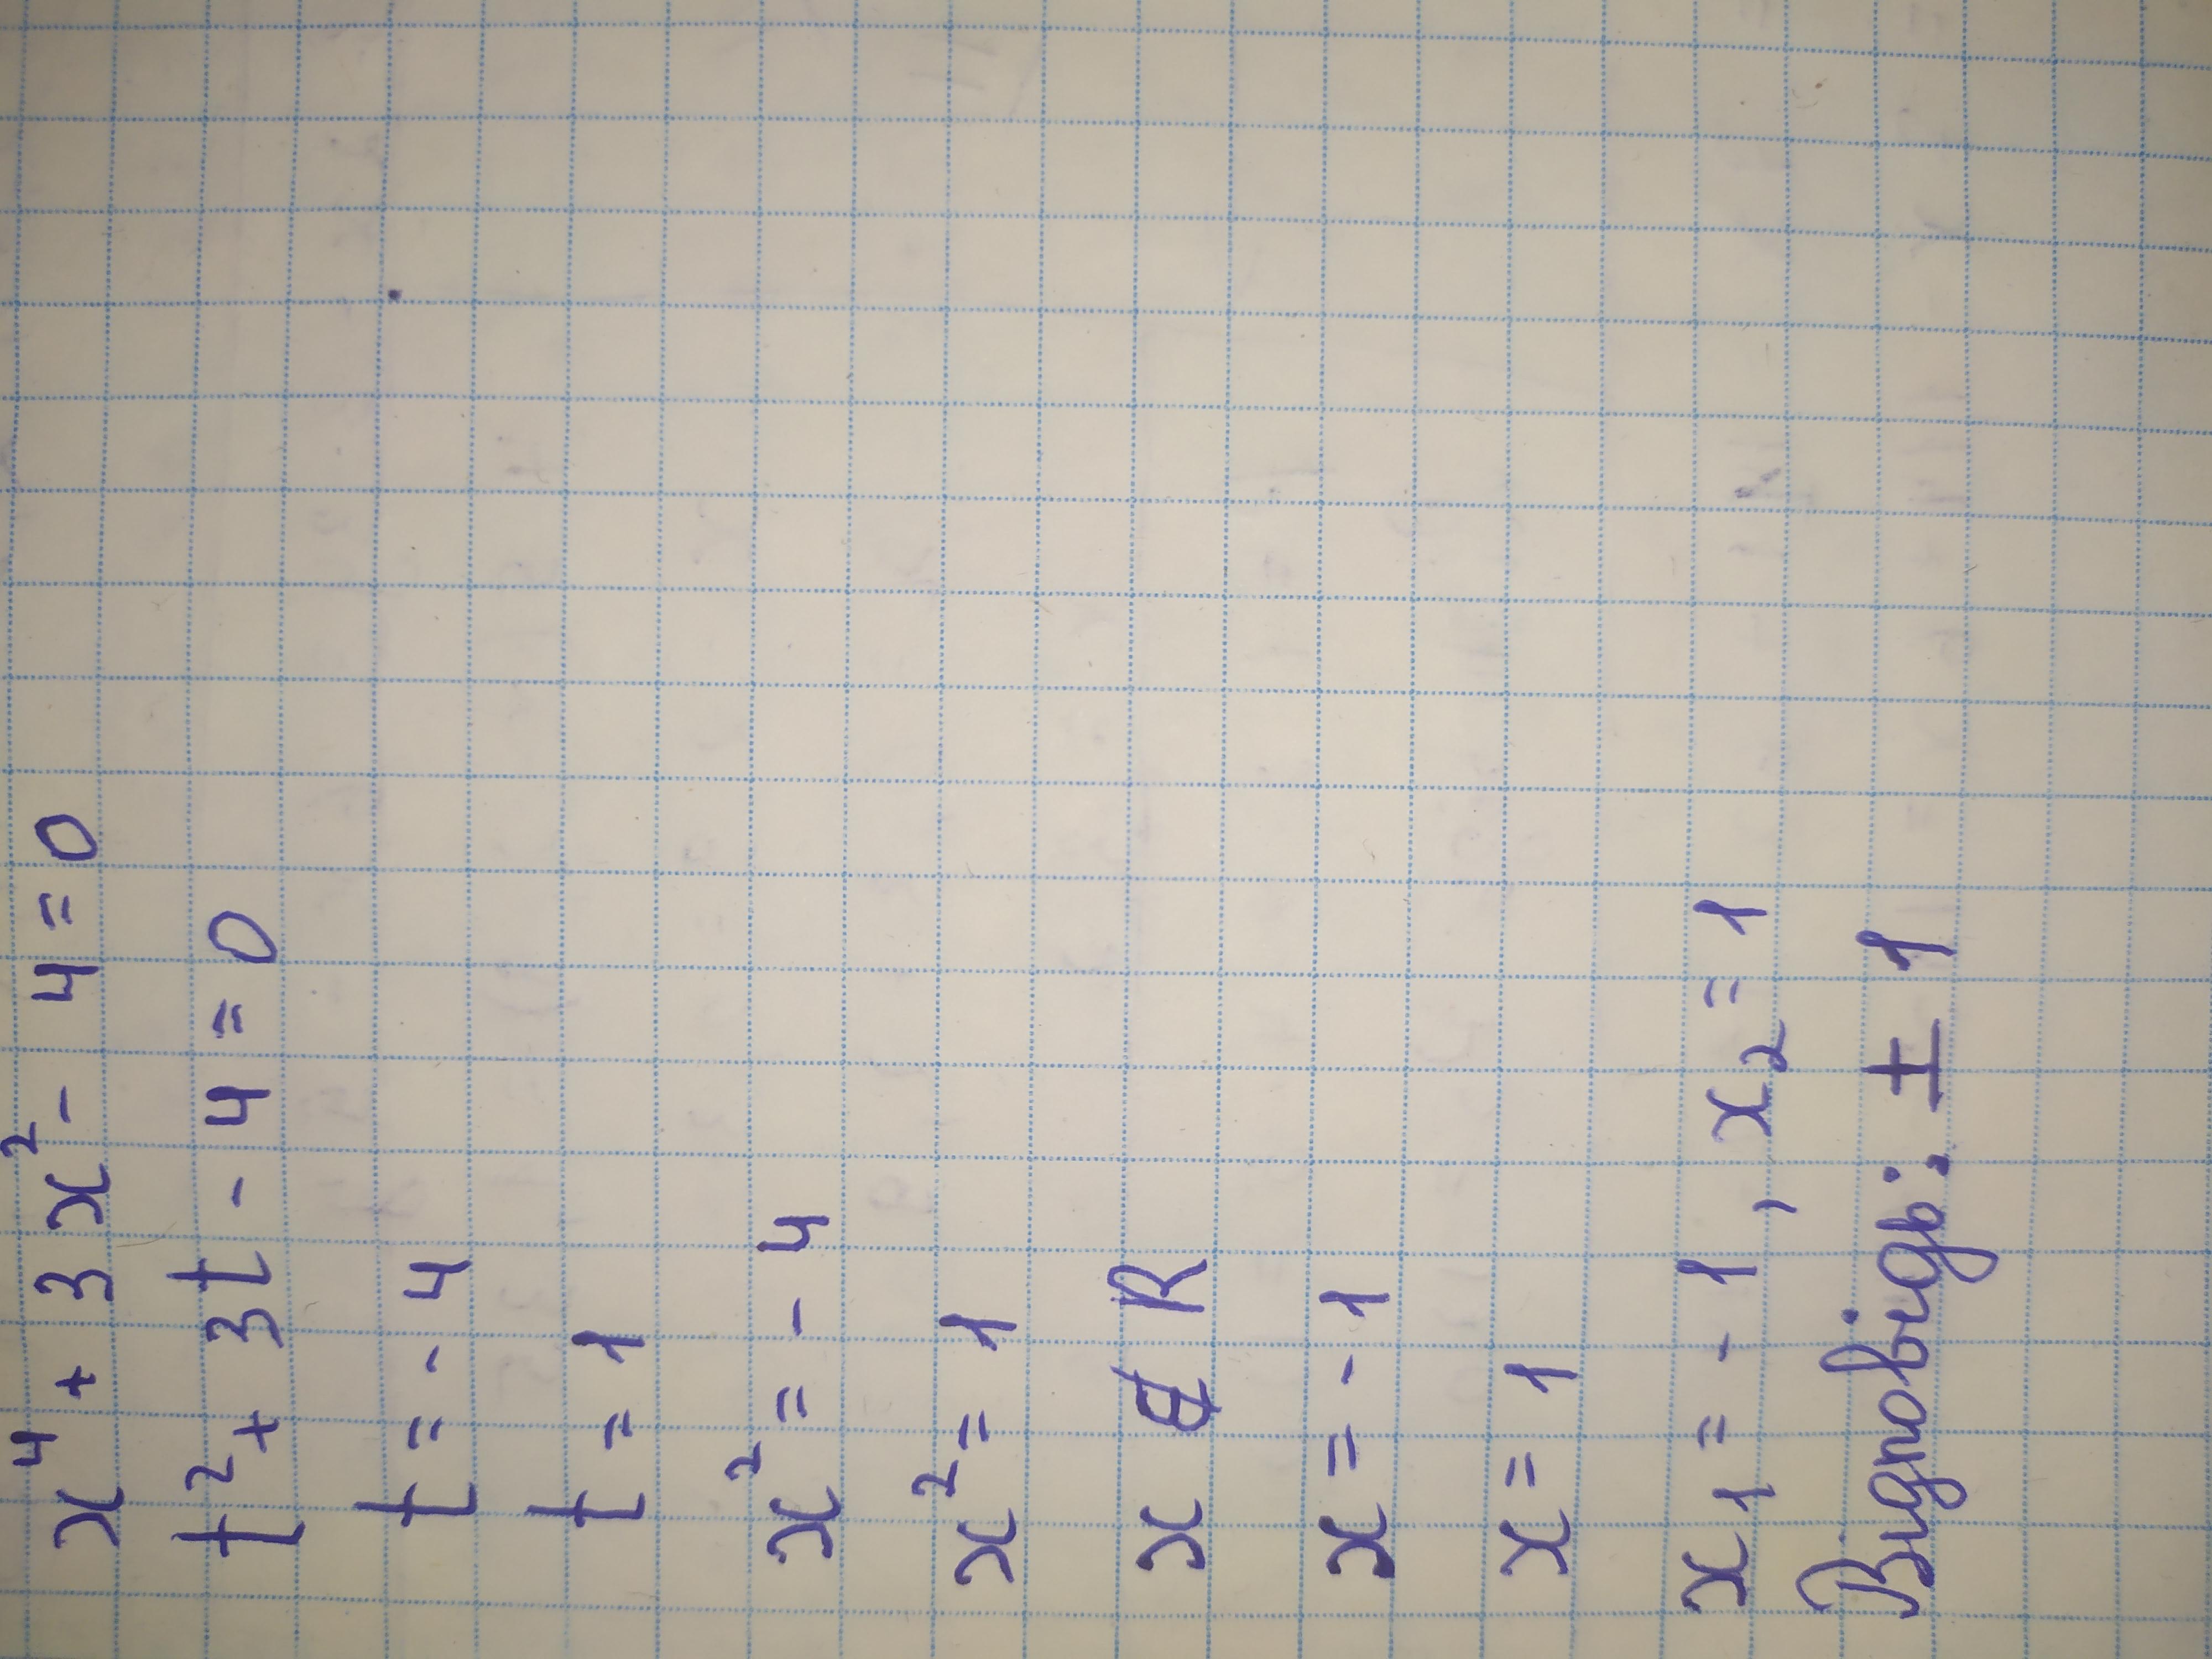 x⁴ + 3x² - 4 = 0
t² + 3t - 4 = 0
t = - 4
t = 1
x² = - 4
x² = 1
x ∉ R
x = - 1
x = 1
x₁ = - 1 , x₂ = 1
Відповідь: ± 1